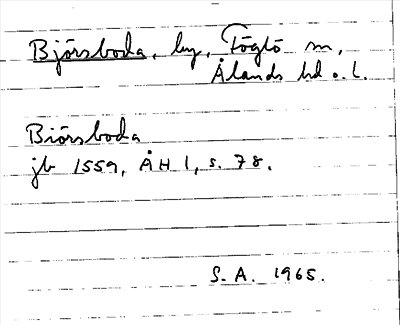 Björsboda, by, Föglö sn,
Ålands hd o. l.
Biörsboda
jb 1559, ÅH 1, s. 78.
S. A. 1965.